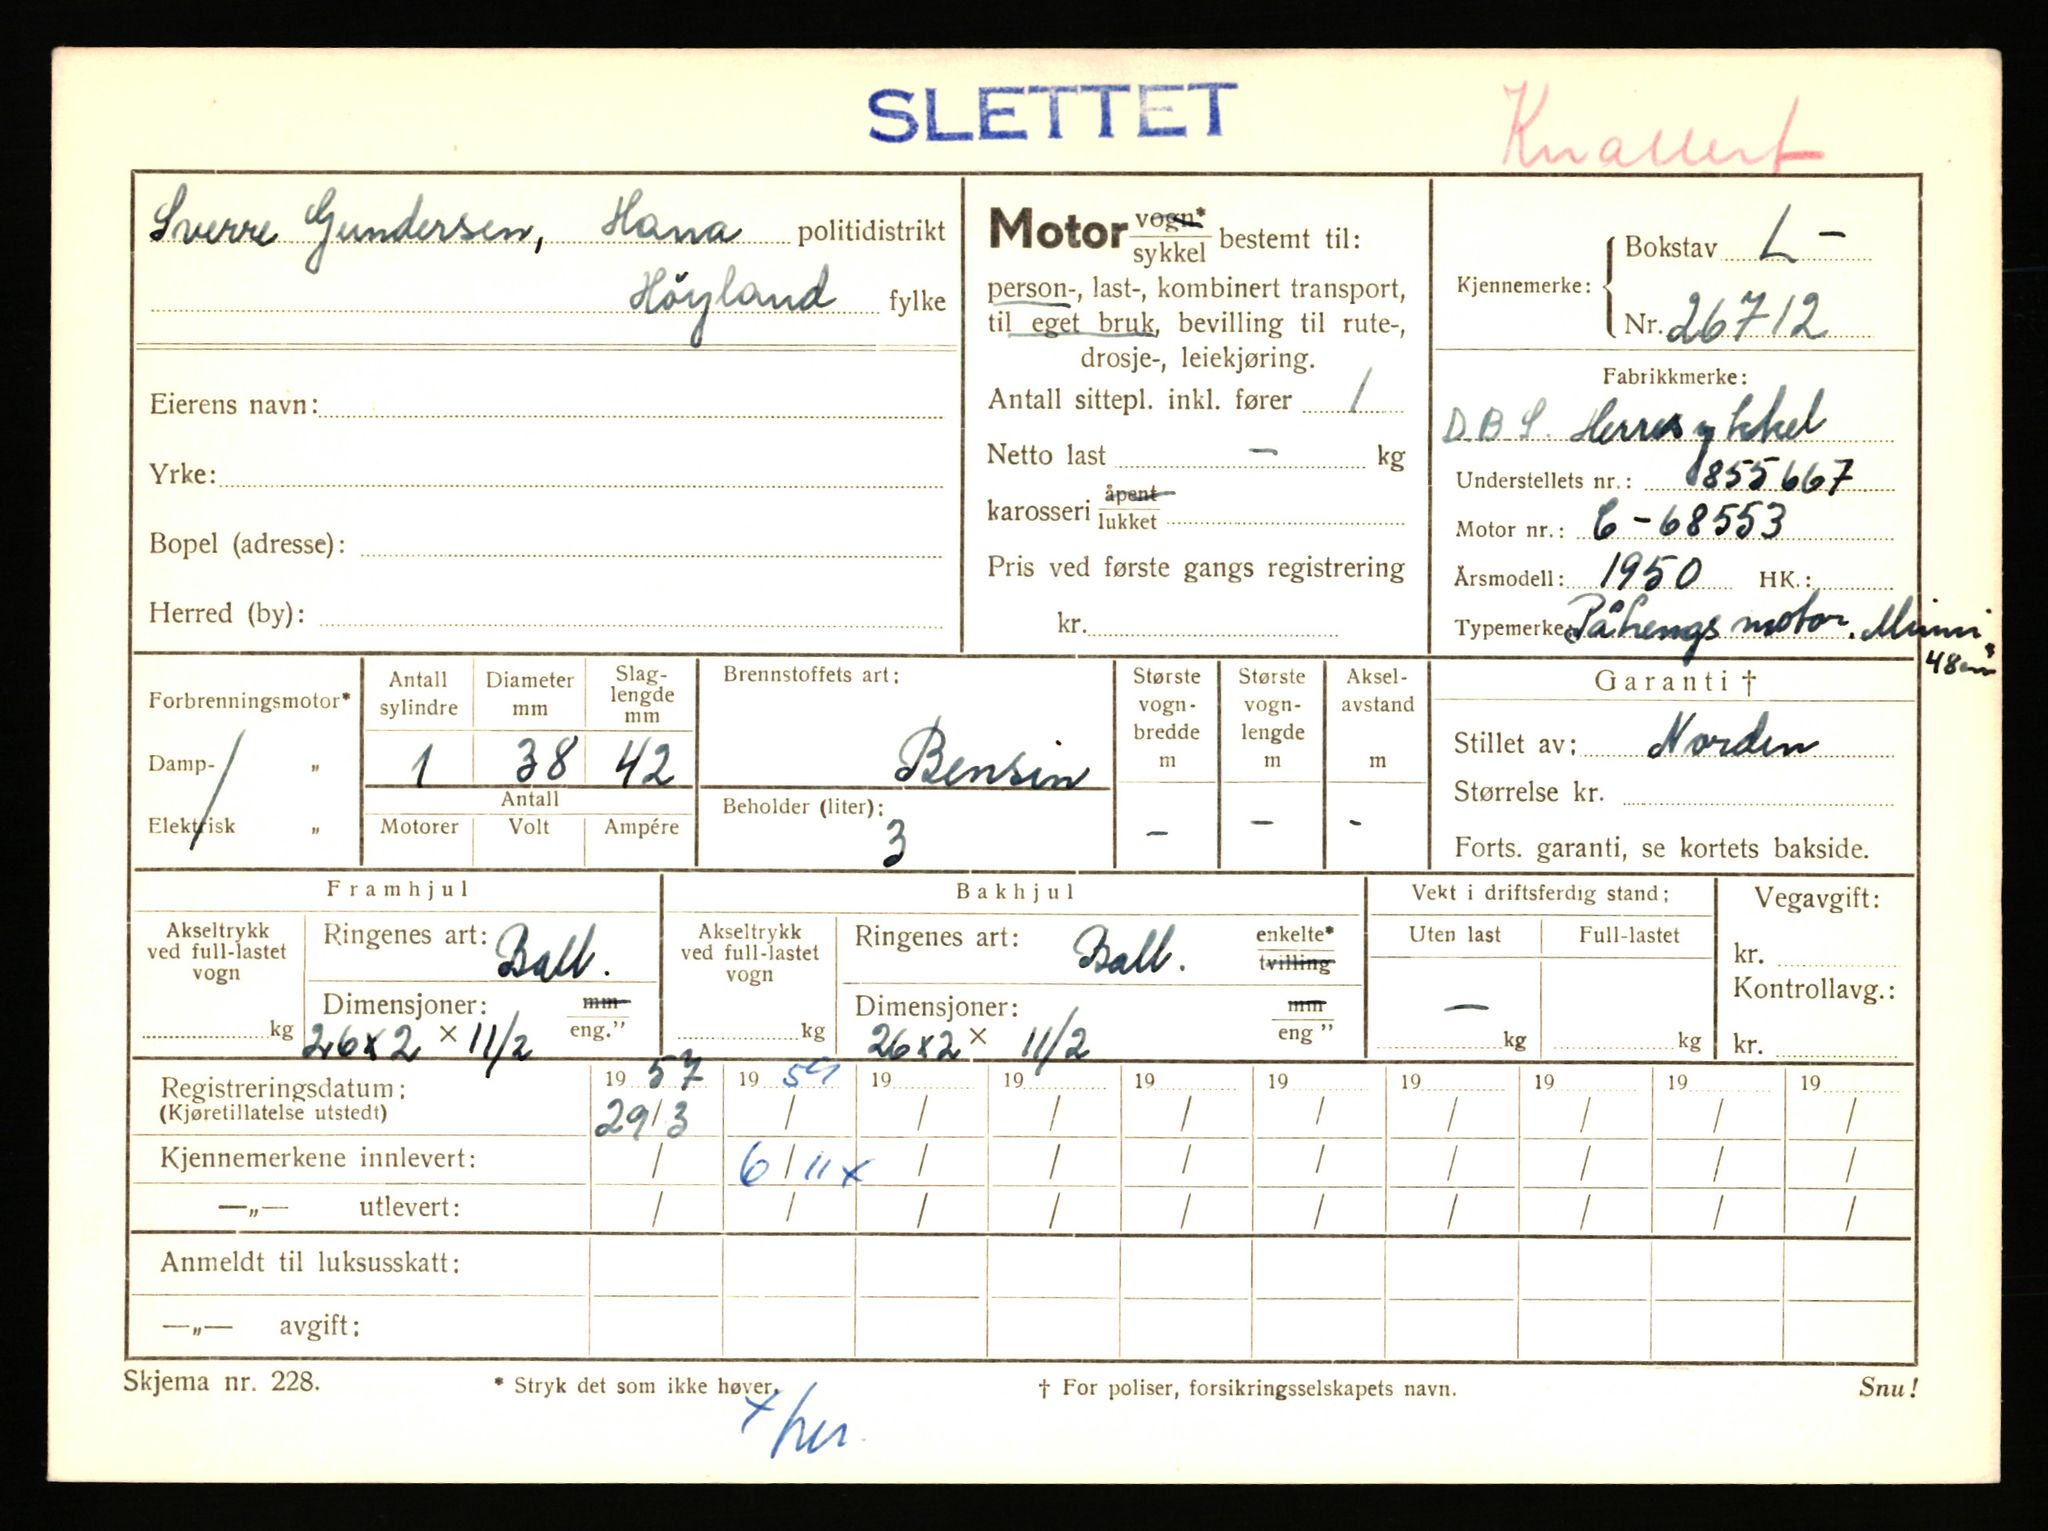 SLETTET
Knallert
Sverre Gundersen, Hana politidistrikt
Höyland fylke
Eierens navn:
Yrke:
Bopel (adresse):
Herred (by):
Motor vogn*/sykkel bestemt til:
person-, last-, kombinert transport,
til eget bruk, bevilling til rute-,
drosje-, leiekjøring.
Antall sittepl. inkl. fører 1
Netto last — kg
karosseri åpent/lukket
Pris ved første gangs registrering
kr.
Kjennemerke: Bokstav L -
Nr. 26712
Fabrikkmerke:
D B S. Herresykkel
Understellets nr.: 855667
Motor nr.: C-68553
Årsmodell: 1950 HK.:
Typemerke: Påhengsmotor. Mimi
48 cm³
Forbrenningsmotor*
Damp- „
Elektrisk „
Antall sylindre
Diameter mm
Slag-lengde mm
1 38 42
Antall
Motorer Volt Ampére
Brennstoffets art:
Bensin
Beholder (liter):
3
Største vogn-bredde m
Største vogn-lengde m
Aksel-avstand m
— — -
Garanti †
Stillet av: Norden
Størrelse kr.
Forts. garanti, se kortets bakside.
Framhjul
Akseltrykk ved full-lastet vogn
kg
Ringenes art: Ball.
Dimensjoner: mm/eng.”
26x2 × 11/2
Bakhjul
Akseltrykk ved full-lastet vogn
kg
Ringenes art: Ball. enkelte*/tvilling
Dimensjoner: mm/eng ”
26x2 × 11/2
Vekt i driftsferdig stand:
Uten last Full-lastet
—
kg kg
Vegavgift:
kr.
Kontrollavg.:
kr.
Registreringsdatum: 19 57 19 59 19 19 19 19 19 19 19 19
(Kjøretillatelse utstedt) 29/3 / / / / / / / / /
Kjennemerkene innlevert: / 6/11 x / / / / / / / /
—„— utlevert: / / / / / / / / / /
Anmeldt til luksusskatt:
—„— avgift:
Skjema nr. 228. * Stryk det som ikke høver. † For poliser, forsikringsselskapets navn. Snu!
x/her.